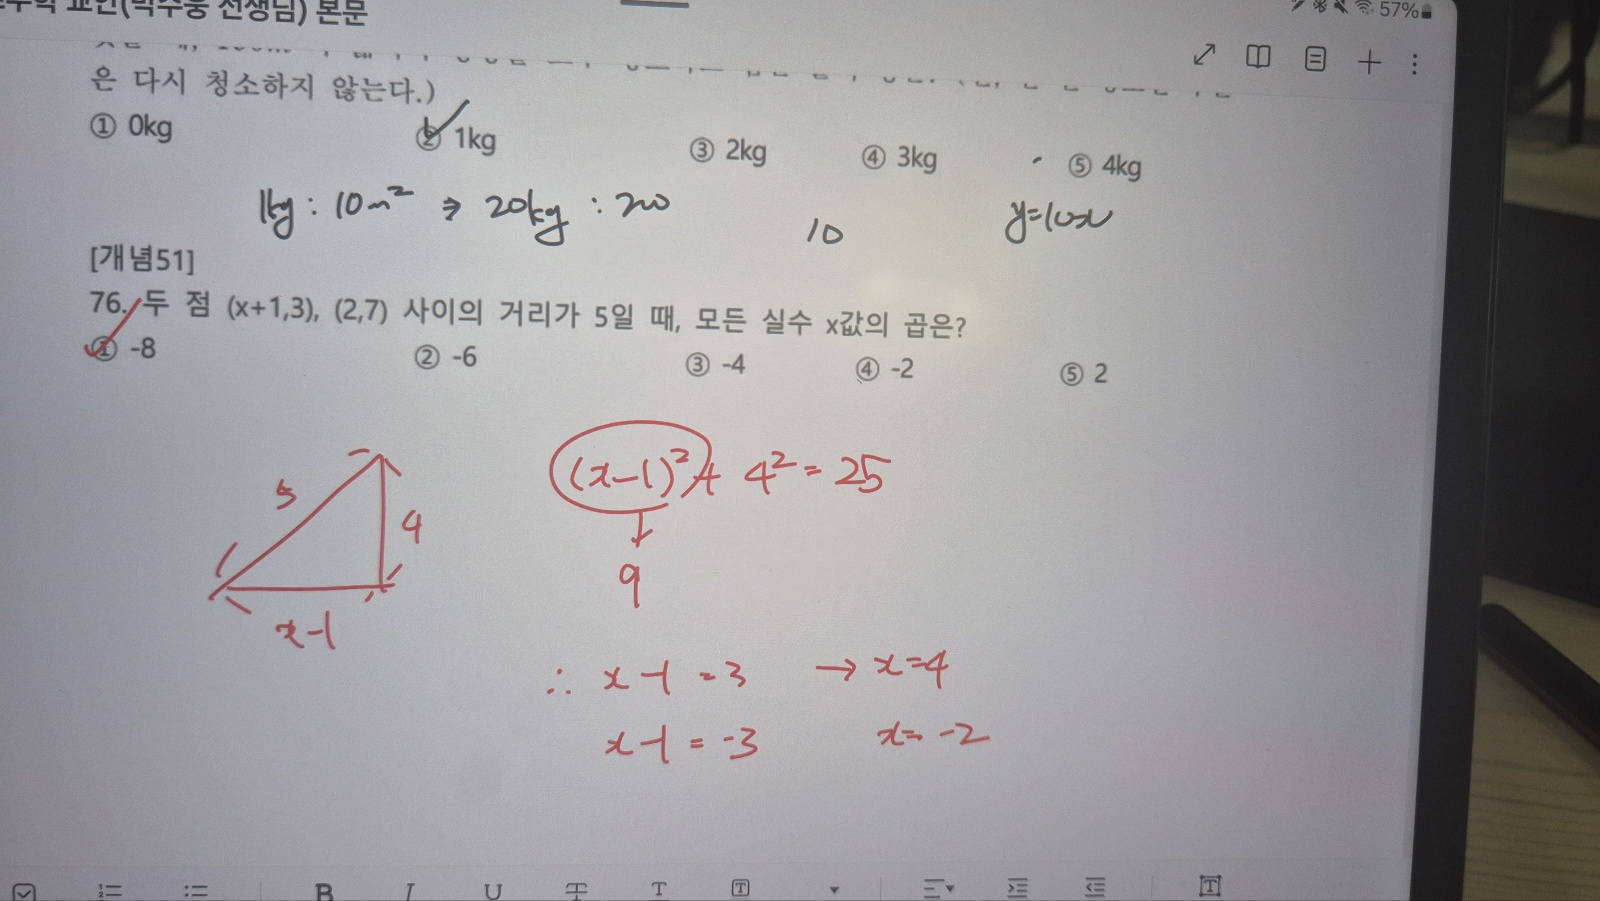 (박수웅 선생님) 본문
57%
은 다시 청소하지 않는다.)
① 0kg ② 1kg ③ 2kg ④ 3kg ⑤ 4kg
1kg : 10m² ⇒ 20kg : 200
10
y=10x
[개념51]
76. 두 점 (x+1,3), (2,7) 사이의 거리가 5일 때, 모든 실수 x값의 곱은?
① -8 ② -6 ③ -4 ④ -2 ⑤ 2
5
4
x-1
(x-1)² + 4² = 25
9
∴ x-1 = 3 → x=4
x-1 = -3 x= -2
B I U T T T T